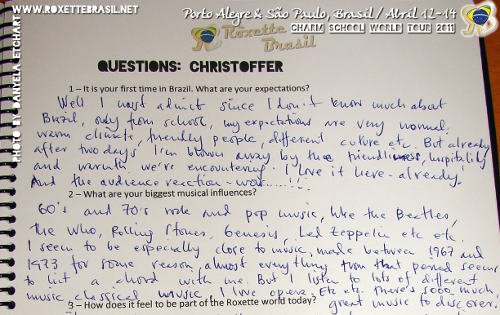 WWW.ROXETTEBRASIL.NET
Porto Alegre & São Paulo, Brasil / Abril 12-14
Roxette Brasil
CHARM SCHOOL WORLD TOUR 2011
PHOTO BY DANYELA ETCHART
QUESTIONS: CHRISTOFFER
1 – It is your first time in Brazil. What are your expectations?
Well I must admit since I don't know much about
Brazil, only from school, my expectations are very normal:
warm climate, friendly people, different culture etc. But already
after two days I'm blown away by the friendliness, hospitality
and warmth we're encountering. I love it here - already!
And the audience reaction - wow.....!!
2 – What are your biggest musical influences?
60's and 70's rock and pop music, like the Beatles,
the Who, Rolling Stones, Genesis, Led Zeppelin etc etc.
I seem to be especially close to music, made between 1967 and
1973 for some reason, almost everything from that period seems
to hit a chord with me. But I listen to lots of different
music, classical music, I love opera. Etc etc. there's sooo much
great music to discover.
3 – How does it feel to be part of the Roxette world today?